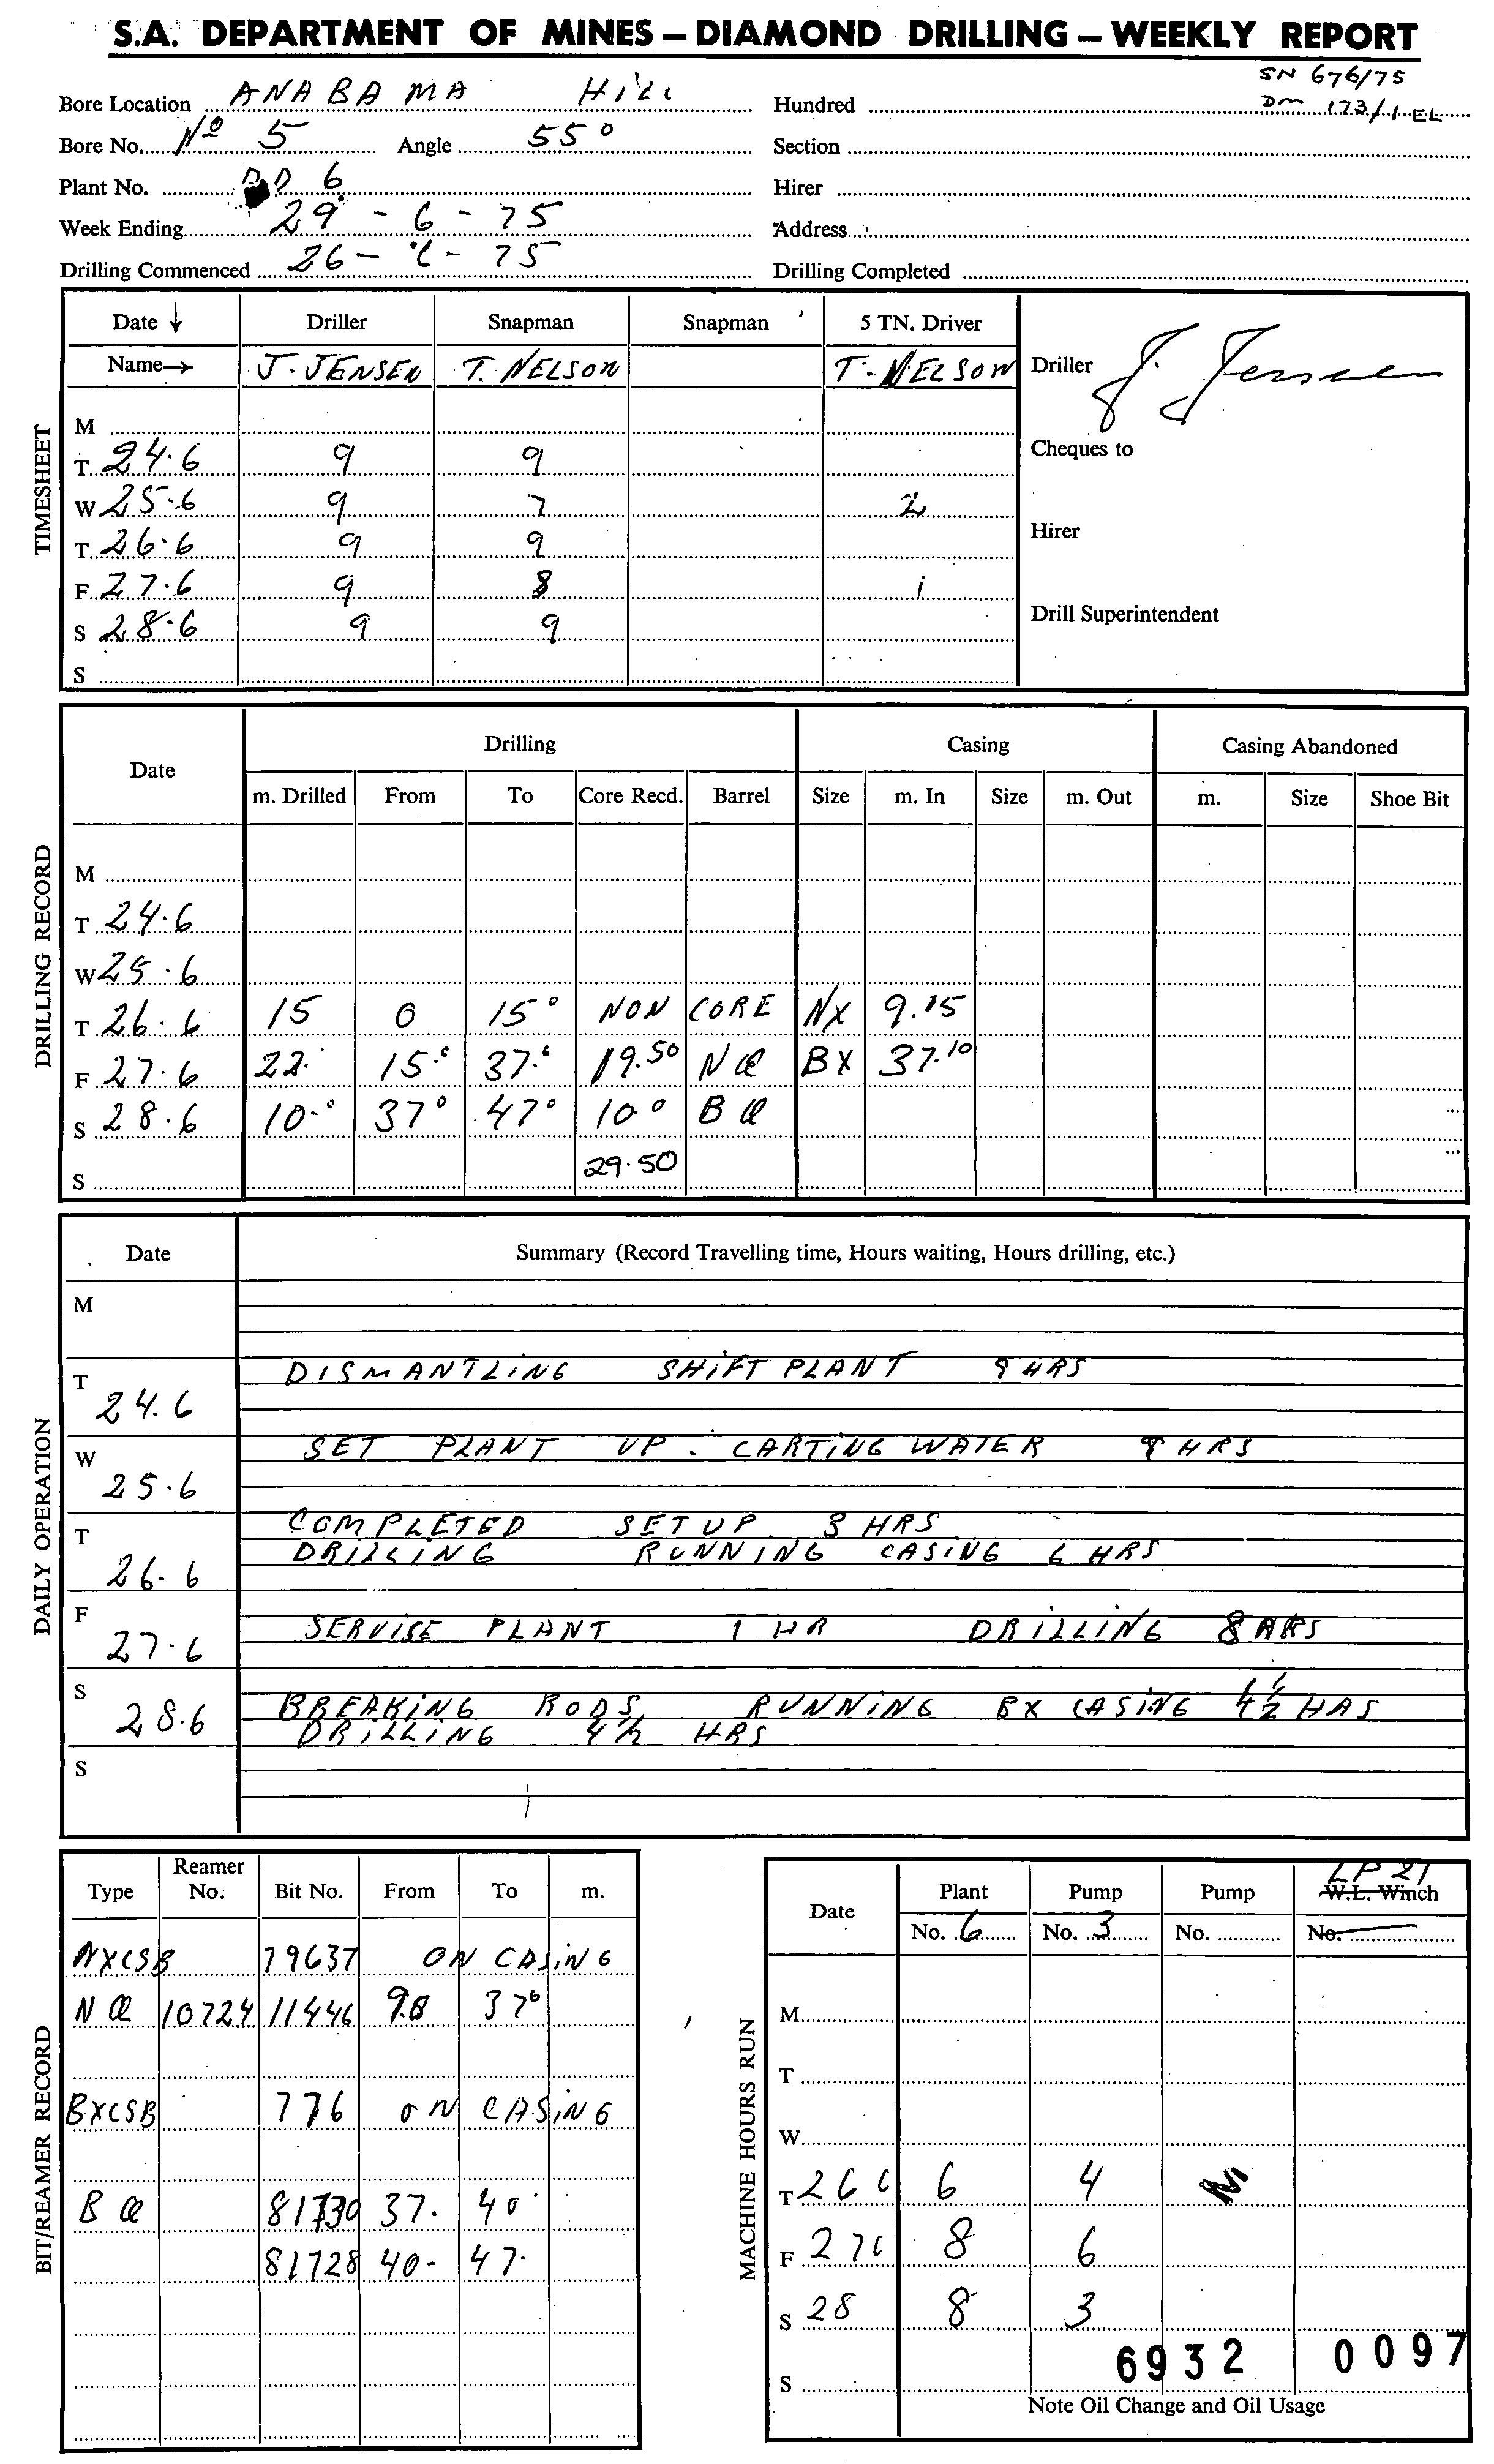 S.A. DEPARTMENT OF MINES – DIAMOND DRILLING – WEEKLY REPORT
SN 676/75
Bore Location ANABAMA HILL Hundred DM 173/1 EL
Bore No. Nº 5 Angle 55° Section
Plant No. DD 6 Hirer
Week Ending 29 - 6 - 75 Address
Drilling Commenced 26 - 6 - 75 Drilling Completed
TIMESHEET
Date ↓ Driller Snapman Snapman 5 TN. Driver
Name→ J. JENSEN T. NELSON T. NELSON Driller J. Jensen
M
T 24.6 9 9 Cheques to
W 25.6 9 7 2
T 26.6 9 9 Hirer
F 27.6 9 8 1
S 28.6 9 9 Drill Superintendent
S
DRILLING RECORD
Date Drilling Casing Casing Abandoned
m. Drilled From To Core Recd. Barrel Size m. In Size m. Out m. Size Shoe Bit
M
T 24.6
W 25.6
T 26.6 15 0 15° NON CORE NX 9.15
F 27.6 22. 15.° 37.° 19.50 NQ BX 37.10
S 28.6 10-° 37° 47° 10.0 BQ
S 29.50
DAILY OPERATION
Date Summary (Record Travelling time, Hours waiting, Hours drilling, etc.)
M
T 24.6 DISMANTLING SHIFT PLANT 9 HRS
W 25.6 SET PLANT UP. CARTING WATER 9 HRS
T 26.6 COMPLETED SET UP 3 HRS
DRILLING RUNNING CASING 6 HRS
F 27.6 SERVISE PLANT 1 HR DRILLING 8 HRS
S 28.6 BREAKING RODS RUNNING BX CASING 4½ HRS
DRILLING 4½ HRS
S
BIT/REAMER RECORD
Type Reamer No. Bit No. From To m.
NXCSB 79637 ON CASING
NQ 10724 11446 9.0 37°
BXCSB 776 ON CASING
BQ 81730 37. 40.
81728 40- 47.
MACHINE HOURS RUN
LP 21
Date Plant Pump Pump W.L. Winch
No. 6 No. 3 No. No.
M
T
W
T 26 6 6 4
F 27 6 8 6
S 28 8 3
6932 0097
S
Note Oil Change and Oil Usage